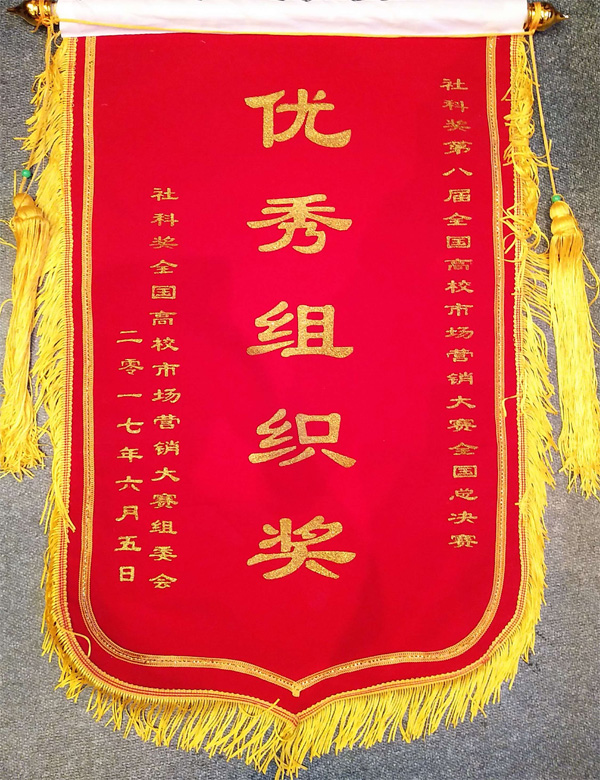 社科奖第八届全国高校市场营销大赛全国总决赛
优秀组织奖
社科奖全国高校市场营销大赛组委会
二零一七年六月五日